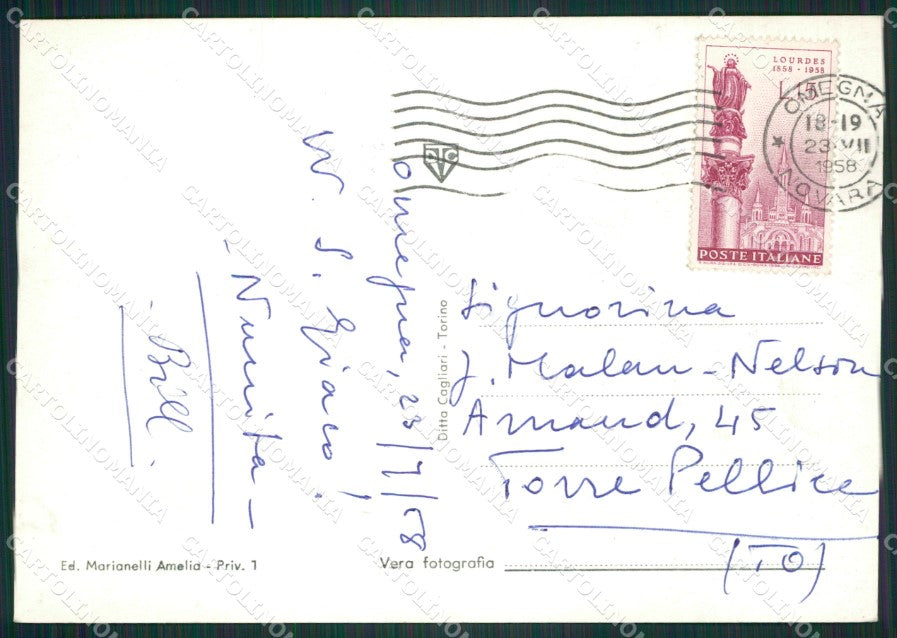 Omegna, 23/7/58
W S. Giaco!
- Nunita -
Bill.
Ed. Marianelli Amelia - Priv. 1
Ditta Cagliari - Torino
Vera fotografia
LOURDES
1858 - 1958
L.15
POSTE ITALIANE
OMEGNA
18-19
23·VII
1958
NOVARA
Signorina
J. Malan-Nelson
Arnaud, 45
Torre Pellice
(TO)
CARTOLINOMANIA